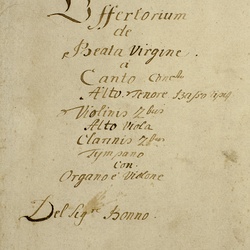 Offertorium
de
Beata Virgine.
à
Canto Conc:to
Alto. Tenore Basso
Violinis 2bus
Alto Viola
Clarinis 2bus
Tympano
Con.
Organo è Violone
Del Sig:re Bonno.